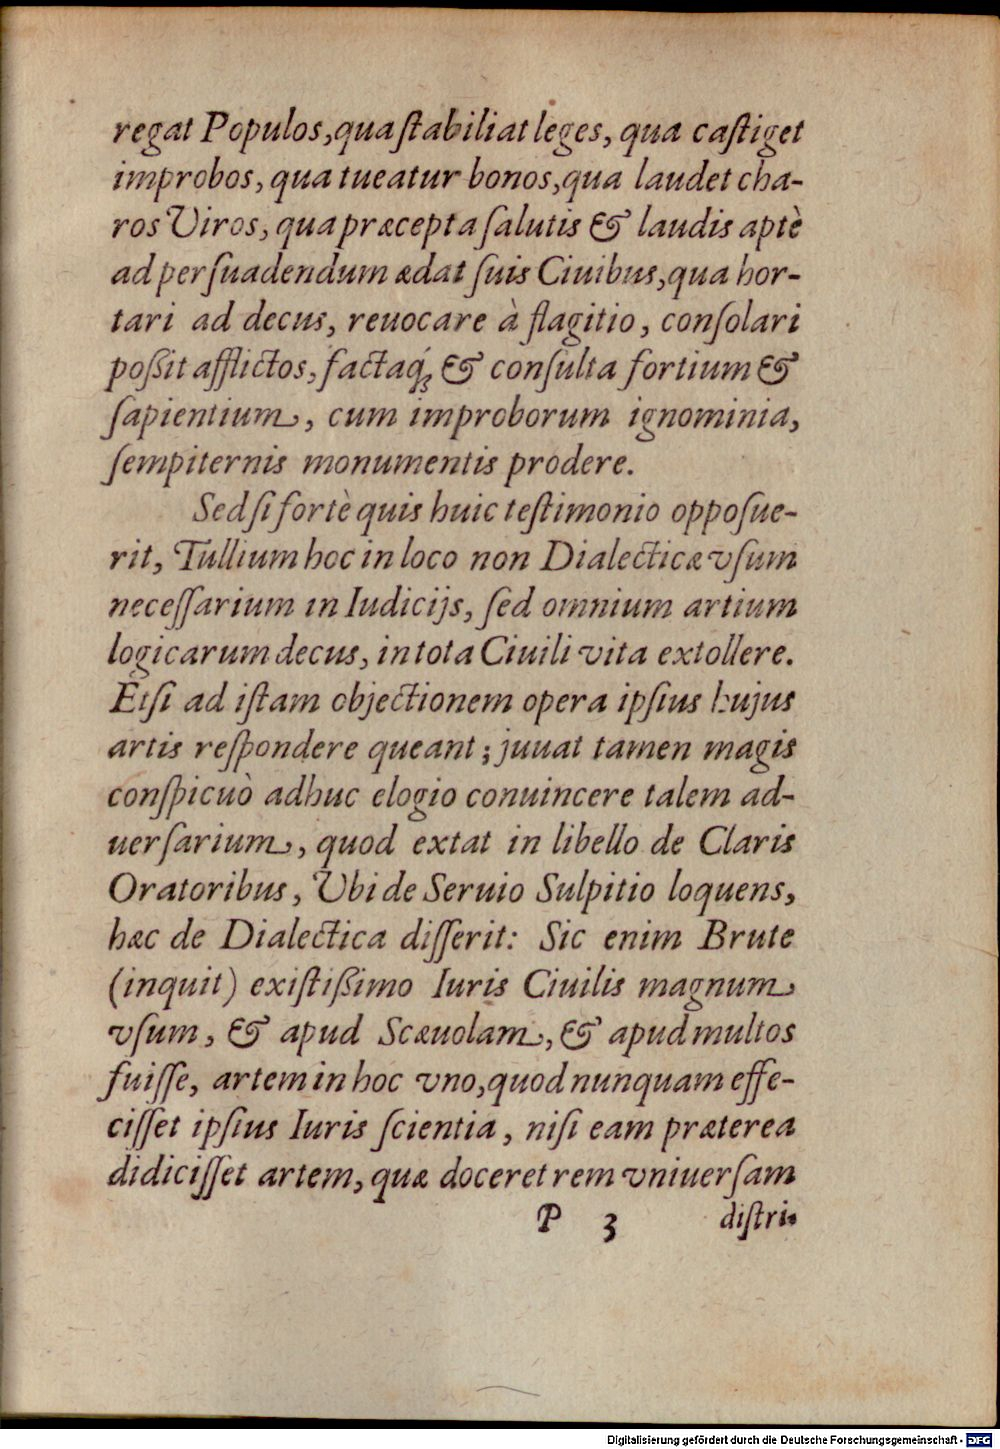 regat Populos, qua ſtabiliat leges, qua caſtiget
improbos, qua tueatur bonos, qua laudet cha-
ros Viros, qua præcepta ſalutis & laudis aptè
ad perſuadendum ædat ſuis Ciuibus, qua hor-
tari ad decus, reuocare à flagitio, conſolari
poßit afflictos, factaq́ꝫ & conſulta fortium &
ſapientium, cum improborum ignominia,
ſempiternis monumentis prodere.
Sed ſi fortè quis huic teſtimonio oppoſue-
rit, Tullium hoc in loco non Dialecticæ vſum
neceſſarium in Iudicijs, ſed omnium artium
logicarum decus, in tota Ciuili vita extollere.
Etſi ad iſtam objectionem opera ipſius hujus
artis reſpondere queant; juuat tamen magis
conſpicuò adhuc elogio conuincere talem ad-
uerſarium, quod extat in libello de Claris
Oratoribus, Vbi de Seruio Sulpitio loquens,
hæc de Dialectica diſſerit: Sic enim Brute
(inquit) exiſtißimo Iuris Ciuilis magnum
vſum, & apud Scæuolam, & apud multos
fuiſſe, artem in hoc vno, quod nunquam effe-
ciſſet ipſius Iuris ſcientia, niſi eam præterea
didiciſſet artem, quæ doceret rem vniuerſam
P 3 diſtri-
Digitalisierung gefördert durch die Deutsche Forschungsgemeinschaft - DFG